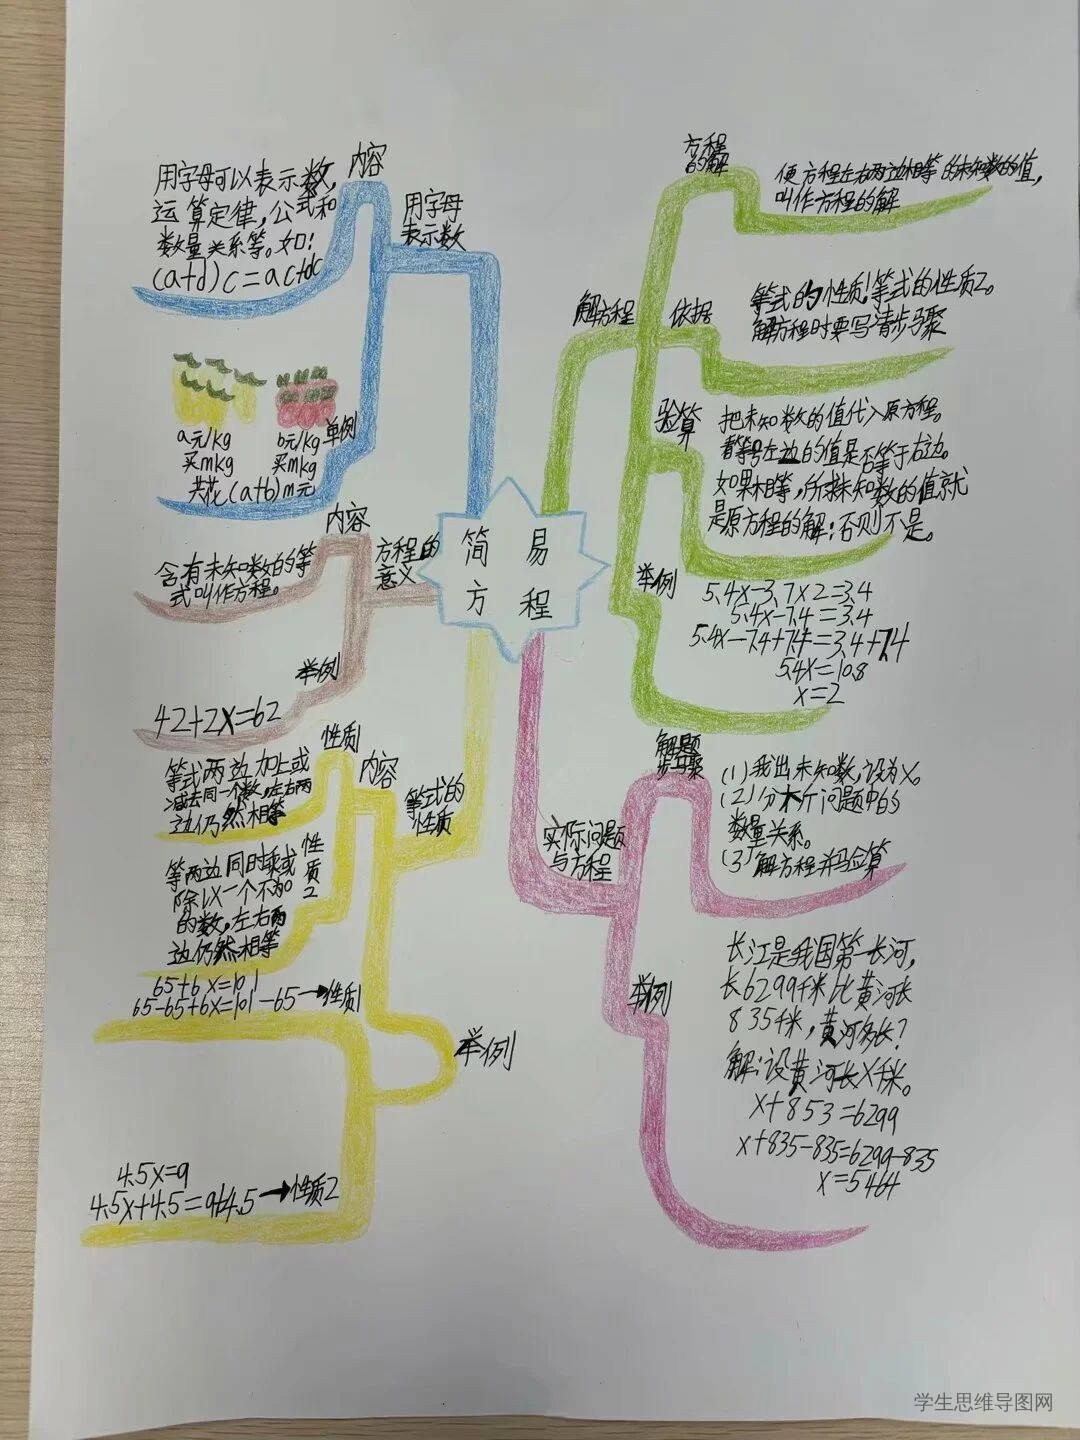 简易
方程
用字母
表示数
内容
用字母可以表示数,
运算定律,公式和
数量关系等。如!
(a+d)c=ac+dc
单例
a元/kg b元/kg
买mkg 买mkg
共花(a+b)m元
方程的
意义
内容
含有未知数的的等
式叫作方程。
举例
42+2x=62
等式的
性质
内容
性质
等式两边加上或
减去同一个数,左右两
边仍然相等
性质2
等两边同时乘或
除以一个不为0
的数,左右两
边仍然相等
举例
65+6x=101
65-65+6x=101-65→性质1
4.5x=9
4.5x+4.5=9+4.5→性质2
解方程
方程
的解
使方程左右两边相等的未知数的值,
叫作方程的解
依据
等式的性质!等式的性质2。
解方程时要写清步骤
验算
把未知数的值代入原方程。
看等号左边的值是否等于右边。
如果相等,所求未知数的值就
是原方程的解;否则不是。
举例
5.4x-3.7×2=3.4
5.4x-7.4=3.4
5.4x-7.4+7.4=3.4+7.4
5.4x=10.8
x=2
实际问题
与方程
解题
步骤
(1)找出未知数,设为x。
(2)分析问题中的
数量关系。
(3)解方程并验算
举例
长江是我国第一长河,
长6299千米比黄河长
835千米,黄河多长?
解:设黄河长x千米。
x+853=6299
x+835-835=6299-835
x=5464
学生思维导图网